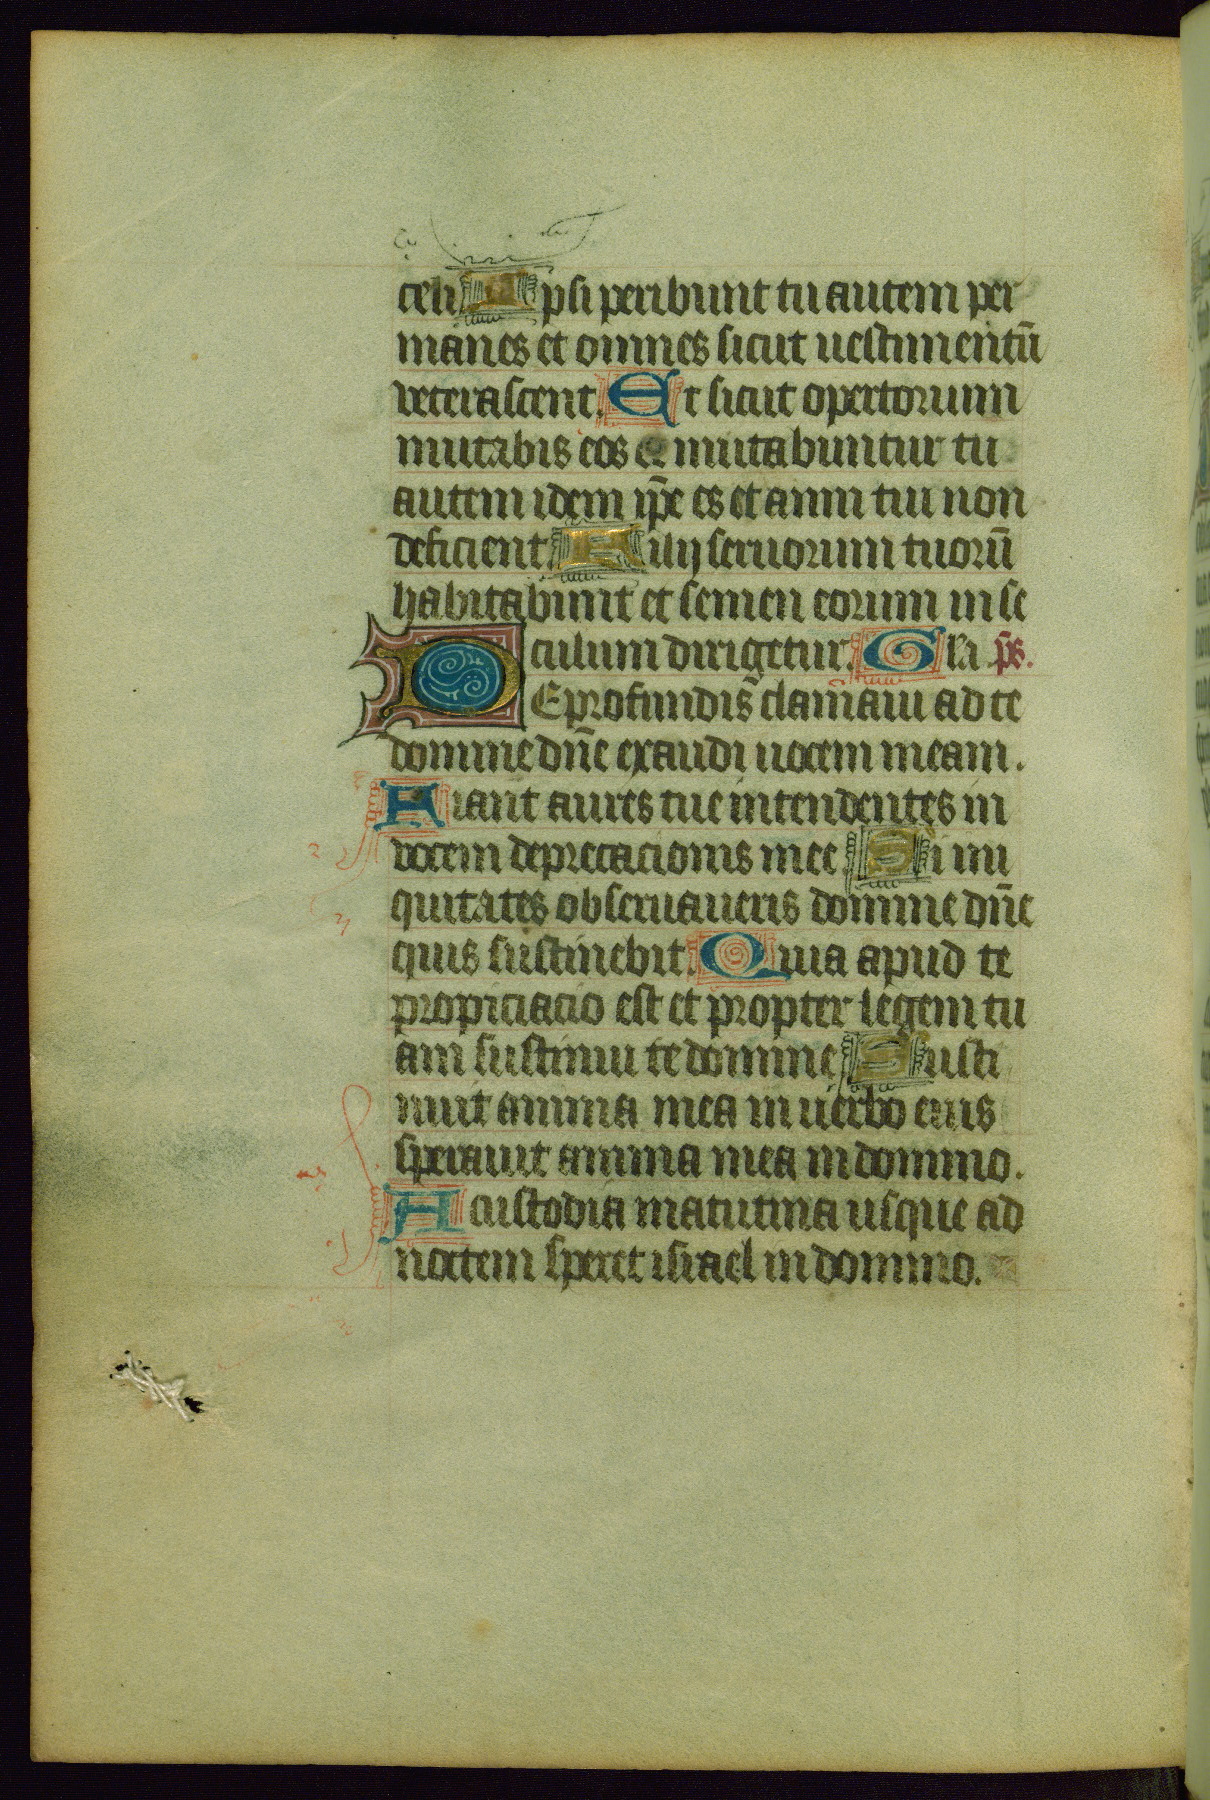 celi Ipsi peribunt tu autem per
manes et omnes sicut uestimentū
veterascent. Et sicut opertorium
mutabis eos et mutabuntur tu
autem idem ip̄e es et anni tui non
deficient. Filij seruorum tuorū
habitabunt et semen eorum in se
culum dirigetur. Gl̄a p̄s.
DE profundis clamaui ad te
domine dn̄e exaudi uocem meam.
Fiant aures tue intendentes in
vocem deprecacionis mee Si ini
quitates obseruaueris domine dn̄e
quis sustinebit. Quia apud te
propiciacio est et propter legem tu
am sustinui te domine Susti
nuit anima mea in uerbo eius
sperauit anima mea in domino.
A custodia matutina usque ad
noctem speret israel in domino.